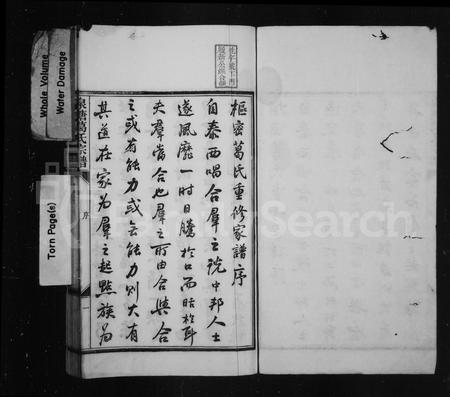 樞密葛氏重修家譜序
自泰西唱合羣之說中邦人士
遂風靡一時日騰於口而聒於耳
夫羣當合也羣之所由合與合
之或有能力或云能力則大有
其道在家為羣之起點族為
葛氏宗譜
序
一
Whole Volume
Water Damage
Torn Page(s)
FamilySearch